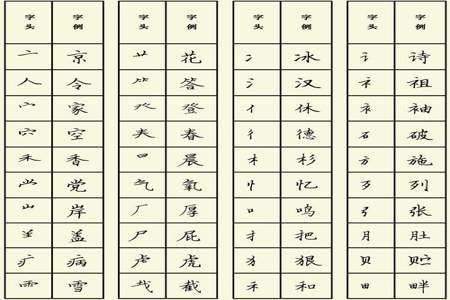 字头 字例 字头 字例 字头 字例 字头 字例
亠 京 艹 花 冫 冰 讠 诗
人 令 ⺮ 答 氵 汉 礻 祖
宀 家 癶 登 亻 休 衤 袖
穴 空 𡗗 春 彳 德 石 破
禾 香 曰 晨 木 杉 方 施
⺌ 党 气 氧 忄 忆 歹 列
山 岸 厂 厚 口 鸣 弓 张
𦍌 盖 尸 屁 扌 把 月 肚
疒 病 虍 虎 犭 狠 贝 贮
雨 雪 𢦏 截 禾 和 田 畔